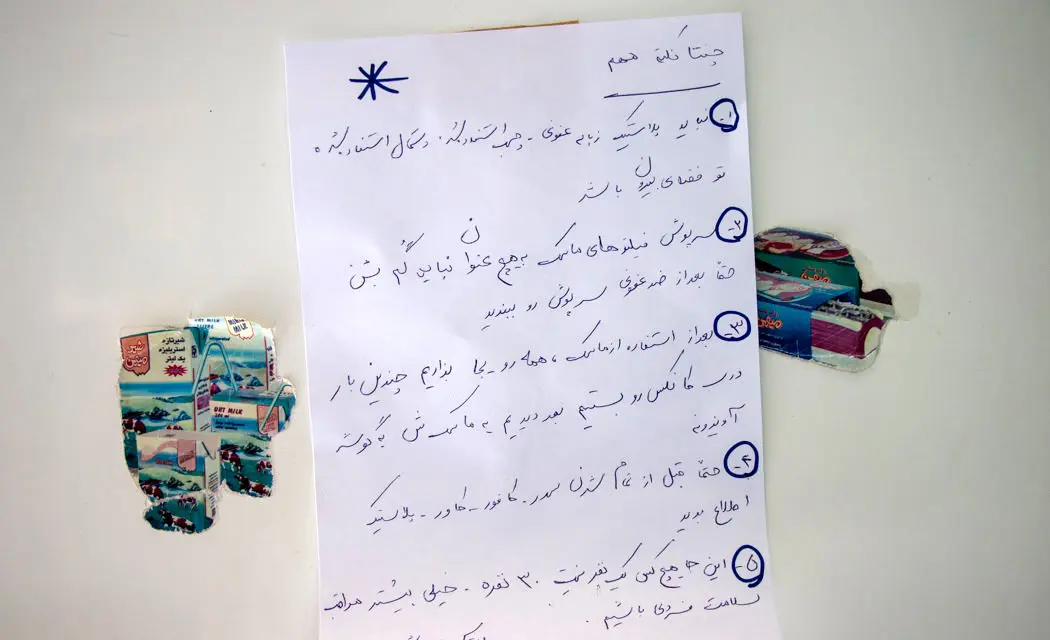 چنتا نکته مهم
۱- نباید پلاستیک زباله عفونی - چسب استفاده شده. دستمال استفاده شده
تو فضای بیرون باشد
۲- سرپوش فیلترهای ماسک به هیچ عنوان نباید گم بشن
حتماً بعد از ضدعفونی سرپوش رو ببندید
۳- بعد از استفاده از ماسک، همه رو یجا بذاریم چندین بار
درب کانکس رو بستیم بعد دیدیم یه ماسک ش یه گوشه
آویزونه
۴- حتماً قبل از تمام شدن سدر - کافور - کاور - پلاستیک
اطلاع بدید
۵- این جا هیچ کس یک نفر نیست ۳۰ نفره - خیلی بیشتر مراقب
سلامت فردی باشیم.
شیرتازه
استریلیزه
یک لیتر
شیر
میهن
UHT MILK
MIHAN
MILK
UHT MILK
میهن